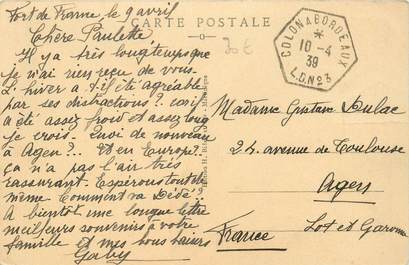 Fort de France le 9 avril
CARTE POSTALE
Chère Paulette
Il y a très longtemps que
je n'ai rien reçu de vous.
L'hiver a t-il été agréable
par ses distractions ?..
a été assez froid et assez long
je crois. Quoi de nouveau
à Agen ?.. Et en Europe?..
ça n'a pas l'air très
rassurant. Espérons tout de
même. Comment va Dédé ?..
A bientôt une longue lettre
meilleurs souvenirs à votre
famille et mes bons baisers
Gaby
30€
COLON A BORDEAUX
*
10-4
39
L.D.N°3
Madame Gustave Dulac
24. avenue de Toulouse
Agen
France
Lot et Garonne